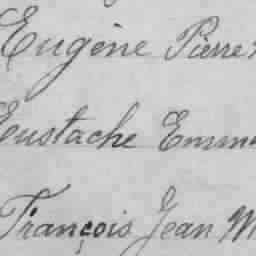 Eugène Pierre
Eustache Emm
François Jean M